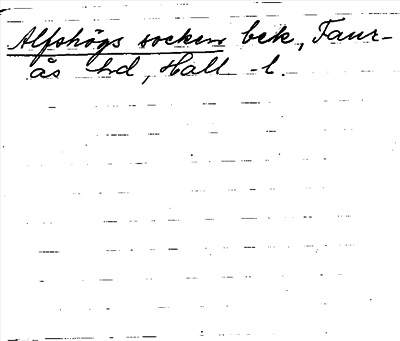 Alfshögs socken bek, Faur-
ås hd, Hall - l.